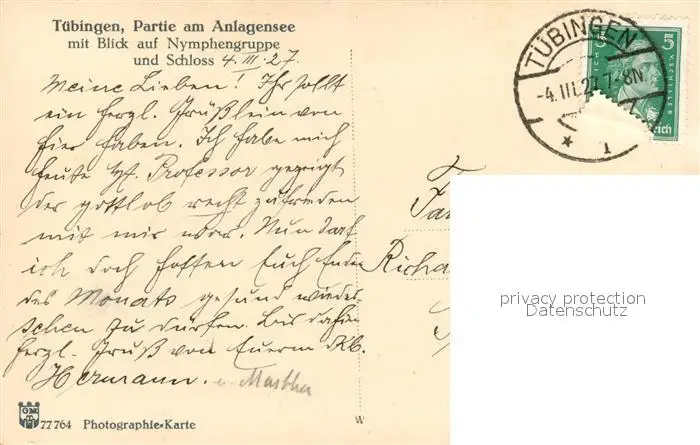 Tübingen, Partie am Anlagensee
mit Blick auf Nymphengruppe
und Schloss 4. III. 27.
Meine Lieben! Ihr sollt
ein herzl. Grüßlein von
hier haben. Ich habe mich
heute Hf. Professor gezeigt
der gottlob recht zufrieden
mit mir war. Nun darf
ich doch hoffen Euch Ende
des Monats gesund wieder
sehen zu dürfen. Bis dahin
herzl. Gruß von Euerm lb.
Hermann. u. Martha
77764 Photographie-Karte
W
TÜBINGEN
-4.III.27.7-8N.
1
5
5
Fa
Richa
privacy protection
Datenschutz